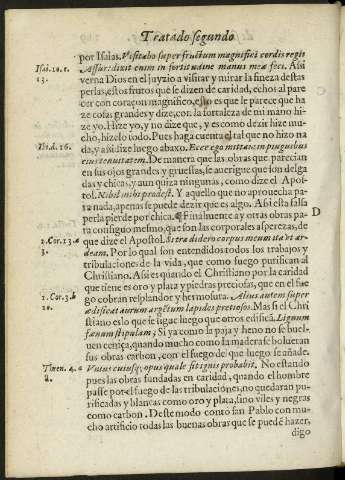 Tratado segundo
por Isaias. Visitabo super fructum magnifici cordis regis
Isai. 10. c.
13.
Assur: dixit enim in fortitudine manus meæ feci. Assi
verna Dios en el juyzio a visitar y mirar la fineza destas
perlas, estos frutos que se dizen de caridad, echos al pare
cer con coraçon magnifico, esso es que le parece que ha
ze cosas grandes y dize, con la fortaleza de mi mano hi
ze yo. Hize yo, y no dize que, y es como dezir hize mu-
cho, hizelo todo. Pues haga cuenta el tal que no hizo na
Ibi. d. 16.
da, y assi dize luego abaxo. Ecce ego mittam in pinguibus
eius tenuitatem. De manera que las obras que parecian
en sus ojos grandes y gruessas, se auerigue que son delga
das y chicas, y aun quiza ningunas, como dize el Apos-
tol. Nihil mihi prodest. Y aquello que no aprouecha pa
ra nada, apenas se puede dezir que es algo. Assi esta falsa
perla pierde por chica. ¶ Finalmente ay otras obras pa-
D
ra consigo mesmo, que son las corporales asperezas, de
1. Cor. 13. a
3.
que dize el Apostol. Si tradidero corpus meum ita vt ar-
deam. Por lo qual son entendidos todos los trabajos y
tribulaciones de la vida, que como fuego purifican al
Christiano. Assi es quando el Christiano por la caridad
que tiene es oro y plata y piedras preciosas, que en el fue
1. Cor. 3. b
10.
go cobran resplandor y hermosura. Alius autem super
ædificat aurum argẽtum lapides pretiosos. Mas si el Chri
stiano es lo que se sigue luego que otros edificã. Lignum
fænum stipulam; Si ya como la paja y heno no se buel-
uen ceniça, quando mucho como la madera se bolueran
sus obras carbon, con el fuego del que luego se añade.
Vnius cuiusq; opus quale sit ignis probabit. No estando
pues las obras fundadas en caridad, quando el hombre
passe por el fuego de las tribulaciones, no quedaran pu-
rificadas y blancas como oro y plata, sino viles y negras
como carbon. Deste modo conto san Pablo con mu-
cho artificio todas las buenas obras que se puedẽ hazer,
digo